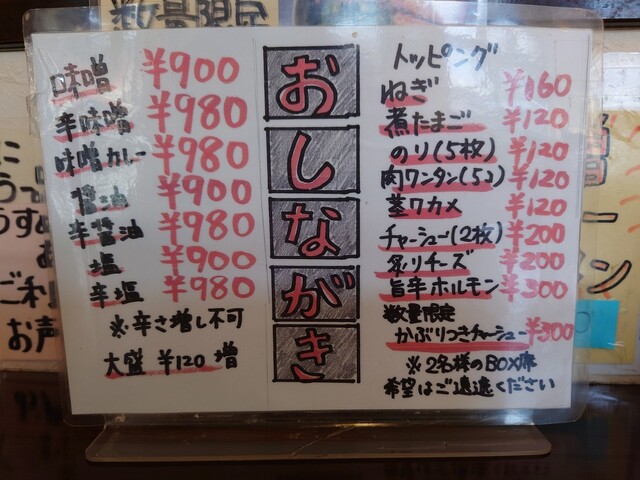 数量限定
味噌 ¥900
辛味噌 ¥980
味噌カレー ¥980
醤油 ¥900
辛醤油 ¥980
塩 ¥900
辛塩 ¥980
※辛さ増し不可
大盛 ¥120 増
おしながき
トッピング
ねぎ ¥160
煮たまご ¥120
のり(5枚) ¥120
肉ワンタン(5コ) ¥120
茎ワカメ ¥120
チャーシュー(2枚) ¥200
炙りチーズ ¥200
旨辛ホルモン ¥300
数量限定
かぶりつきチャーシュー ¥300
※2名様のBOX席
希望はご遠慮ください